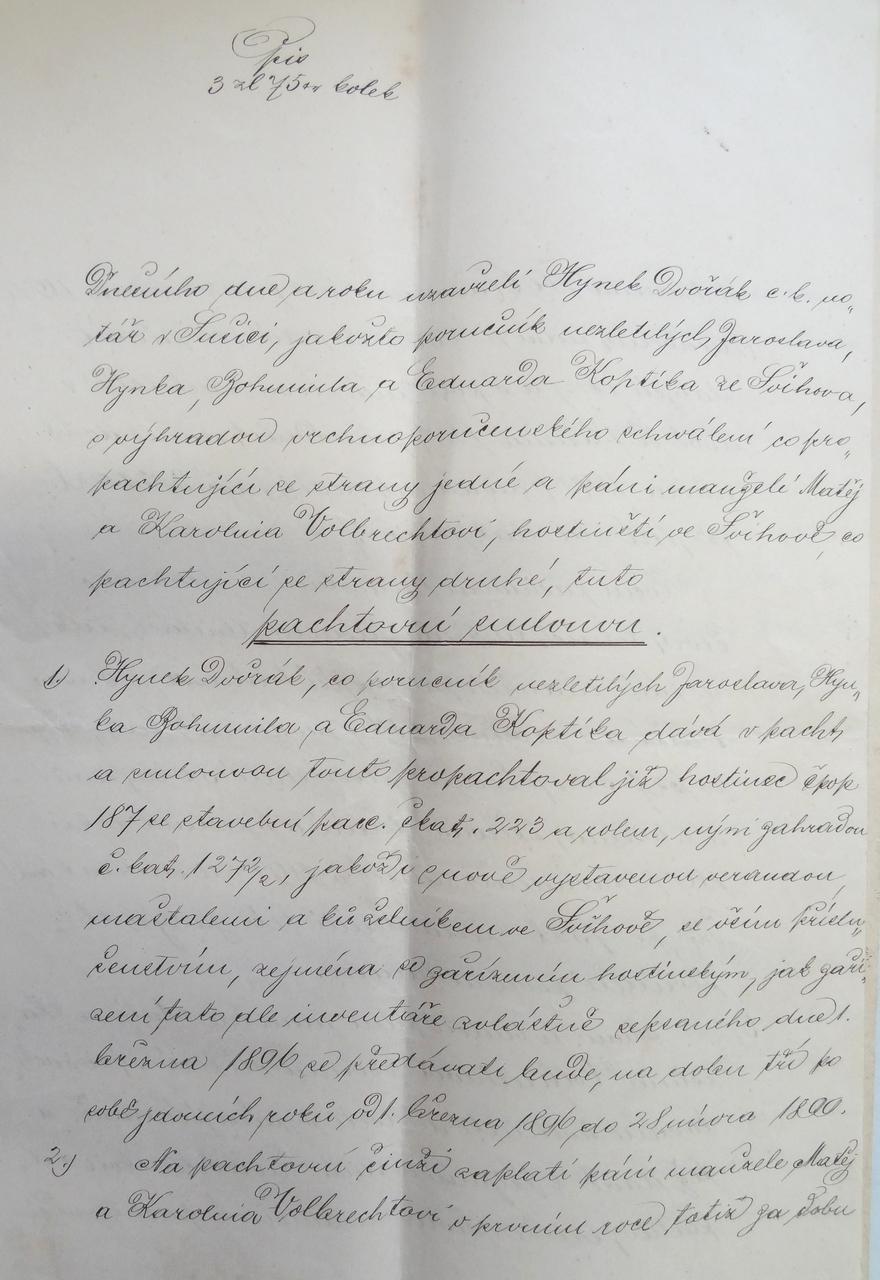 Opis
3 zl 75 kr kolek
Dnešního dne a roku uzavřeli Hynek Dvořák c. k. no„
tář v Sušici, jakožto poručník nezletilých Jaroslava,
Hynka, Bohumila a Eduarda Koptíka ze Švihova,
s výhradou vrchnoporučenského schválení co pro„
pachtující se strany jedné a páni manželé Matěj
a Karolina Volbrechtovi, hostinští ve Švihově, co
pachtující se strany druhé, tuto
pachtovní smlouvu.
1.) Hynek Dvořák, co poručník nezletilých Jaroslava, Hyn„
ka Bohumila a Eduarda Koptíka dává v pacht
a smlouvou touto propachtoval již hostinec čpop
187 se stavební parc. čkat. 223 a rolem, nyní zahradou
č. kat. 1272/2, jakož i s nově vystavenou verandou,
maštalemi a kuželníkem ve Švihově, se vším příslu„
šenstvím, zejména se zařízením hostinským, jak zaří„
zení tato dle inventáře zvláštně sepsaného dne 1.
března 1896 se předávati bude, na dobu tří po
sobě jdoucích roků od 1. března 1896 do 28 února 1899.
2.) Na pachtovní činži zaplatí páni manželé Matěj
a Karolina Volbrechtovi v prvním roce totiž za dobu